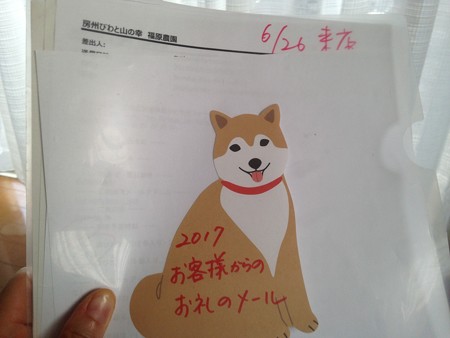 房州びわと山の幸　福原農園
6/26 来店
差出人:
2017
お客様からの
お礼のメール